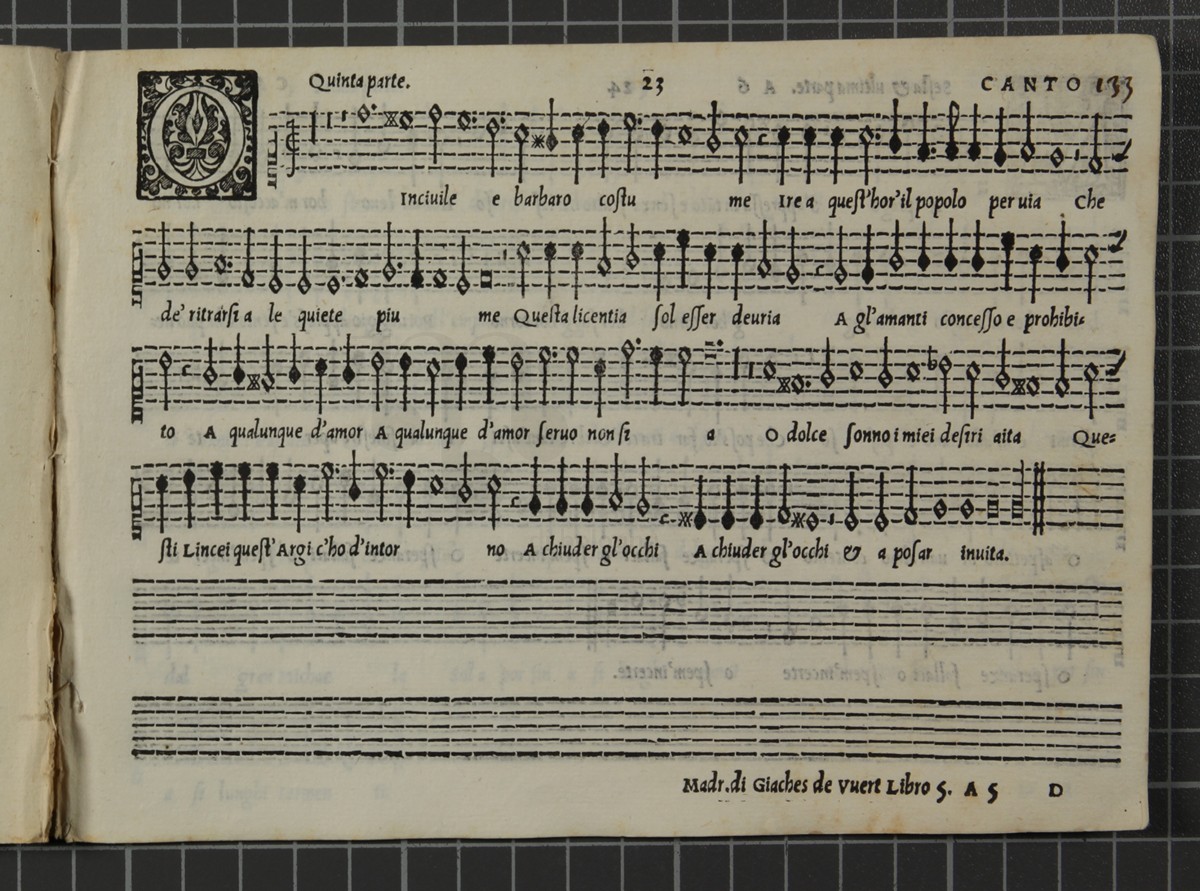 Quinta parte. 23 CANTO 133
O Inciuile e barbaro costu me Ire a quest'hor'il popolo per uia Che
de' ritrarsi a le quiete piu me Questa licentia sol esser deuria A gl'amanti concesso e prohibi=
to A qualunque d'amor A qualunque d'amor seruo non si a O dolce sonno i miei desiri aita Que=
sti Lincei quest'Argi c'ho d'intor no A chiuder gl'occhi A chiuder gl'occhi & a posar inuita.
Madr. di Giaches de Vuert Libro 5. A 5 D